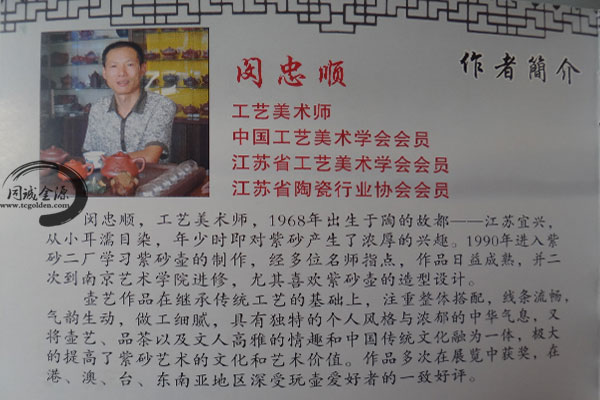 作者簡介
闵忠顺
工艺美术师
中国工艺美术学会会员
江苏省工艺美术学会会员
江苏省陶瓷行业协会会员
同诚金源
www.tcgolden.com
闵忠顺，工艺美术师，1968年出生于陶的故都——江苏宜兴，
从小耳濡目染，年少时即对紫砂产生了浓厚的兴趣。1990年进入紫
砂二厂学习紫砂壶的制作，经多位名师指点，作品日益成熟，并二
次到南京艺术学院进修，尤其喜欢紫砂壶的造型设计。
壶艺作品在继承传统工艺的基础上，注重整体搭配，线条流畅，
气韵生动，做工细腻，具有独特的个人风格与浓郁的中华气息，又
将壶艺、品茶以及文人高雅的情趣和中国传统文化融为一体，极大
的提高了紫砂艺术的文化和艺术价值。作品多次在展览中获奖，在
港、澳、台、东南亚地区深受玩壶爱好者的一致好评。